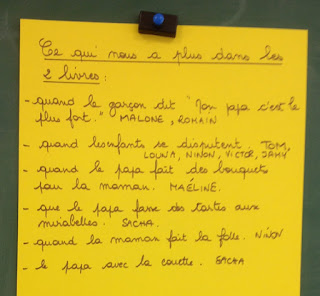 Ce qui nous a plus dans les
2 livres :
- quand le garçon dit "Mon papa c'est le
plus fort." MALONE, ROMAIN
- quand les enfants se disputent. TOM,
LOUNA, NINON, VICTOR, SAMY
- quand le papa fait des bouquets
pour la maman. MAÉLINE.
- que le papa fasse des tartes aux
mirabelles. SACHA.
- quand la maman fait la folle. NINON
- le papa avec la couette. SACHA